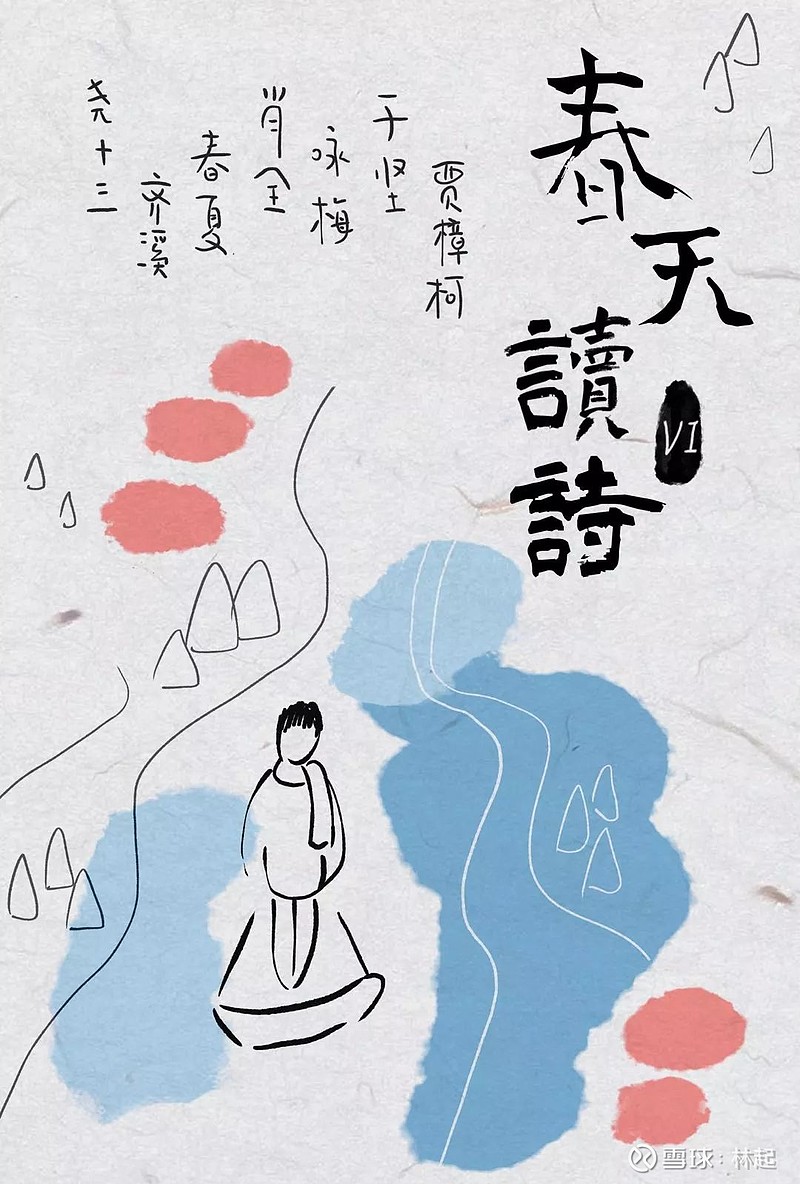 春天
讀詩
VI
贾樟柯
于坚
咏梅
肖全
春夏
齐溪
尧十三
雪球：林起